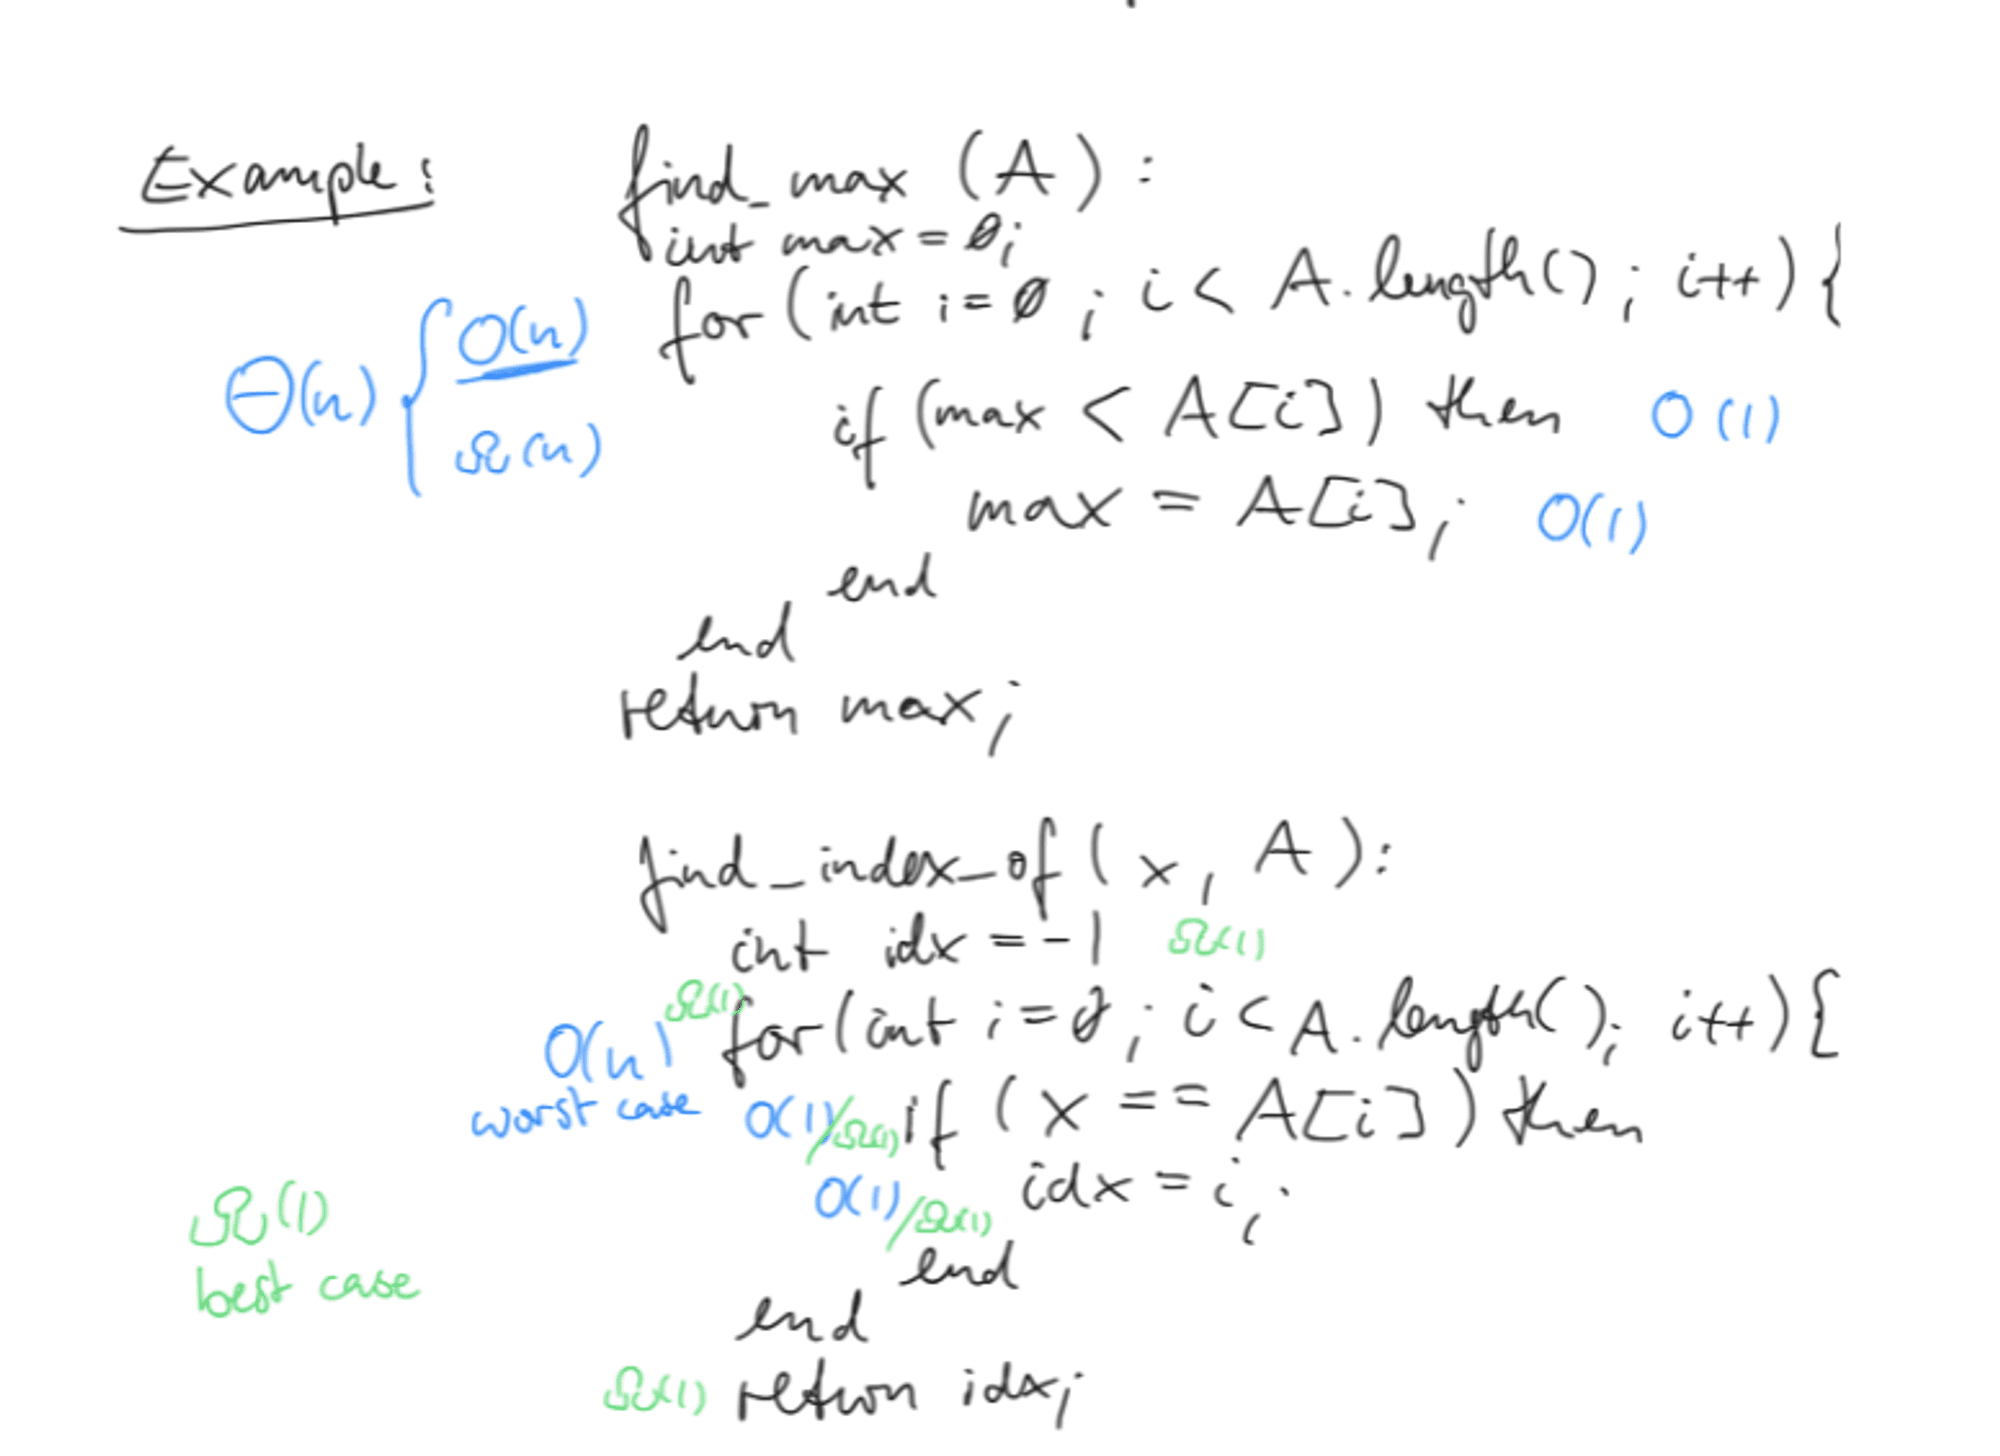 Example: find_max (A):
int max = 0;
for (int i = 0; i < A.length(); i++) {
Θ(n) { O(n)
Ω(n)
if (max < A[i]) then O(1)
max = A[i]; O(1)
end
end
return max;
find_index_of (x, A):
int idx = -1 Ω(1)
O(n) Ω(1) for (int i = 0; i < A.length(); i++) {
worst case O(1)/Ω(1) if (x == A[i]) then
O(1)/Ω(1) idx = i;
Ω(1)
best case
end
end
Ω(1) return idx;